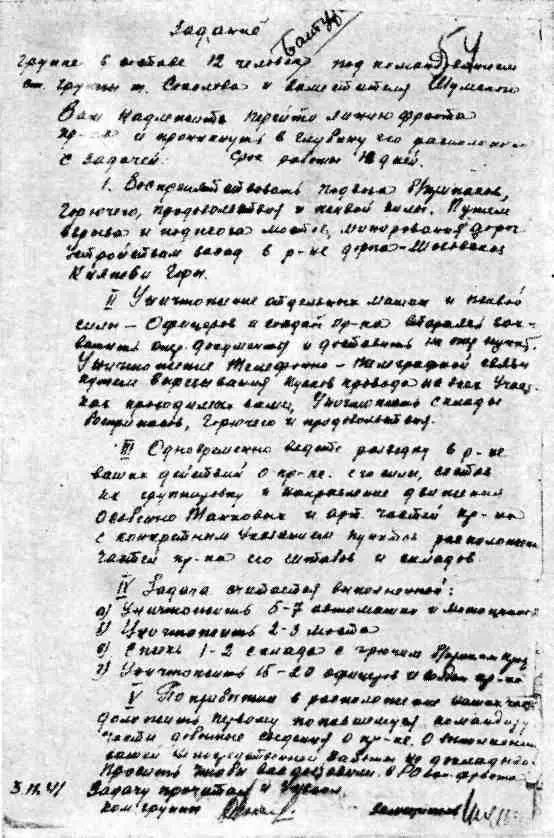 Задание
группе в составе 12 человек под командованием
ст. группы т. Соколова и заместителя Шумского
Вам надлежит перейти линию фронта
пр-ка и проникнуть в глубину его расположения
с задачей. Срок работы дней.
1. Воспрепятствовать подвоза
горючего, продовольствия и живой силы. Путем
взрыва и поджога мостов, минирования дорог
завод в р-не дорога – Московское
Княжьи Горы.
II Уничтожение отдельных машин и живой
силы – Офицеров и солдат пр-ка стараясь зах-
ватить опер. документы и доставить на опер.
Уничтожение Телефонно – телеграфной связи
путем вырезывания кусков провода на всех
проводимых вами, Уничтожить склады
боеприпасов, Горючего и продовольствия.
III Одновременно ведете разведку в р-не
ваших действий о пр-ке. его силы, состав
их группировку и направление движения
Особенно Танковых и арт. частей пр-ка
с конкретным указанием пунктов расположения
частей пр-ка его штабов и складов
IV Задача считается выполненной:
а) Уничтожить 5–7 автомашин и мотоциклов
б) Уничтожить 2–3 моста
в) Сжечь 1–2 склада с горючим
г) Уничтожить 15–20 офицеров и пр-ка
V По прибытии в расположение наших частей
доложить первому попавшемуся командиру
части данные сведения о пр-ке. О выполнении
вашей работы не докладывать
Просить вас
3.11.41 Задачу прочитал и
ком группы